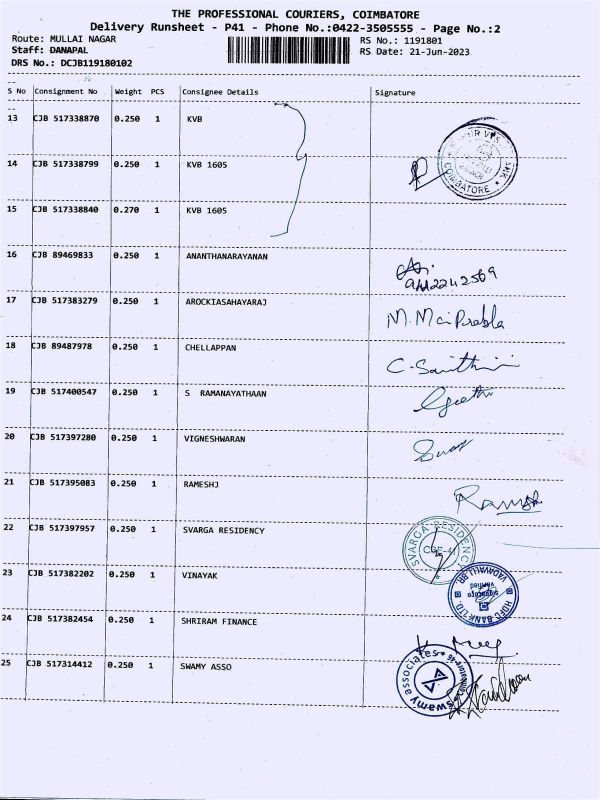 THE PROFESSIONAL COURIERS, COIMBATORE
Delivery Runsheet - P41 - Phone No.:0422-3505555 - Page No.:2
Route: MULLAI NAGAR RS No.: 1191801
Staff: DANAPAL RS Date: 21-Jun-2023
DRS No.: DCJB119180102
S No Consignment No Weight PCS Consignee Details Signature
13 CJB 517338870 0.250 1 KVB
14 CJB 517338799 0.250 1 KVB 1605
COIMBATORE
15 CJB 517338840 0.270 1 KVB 1605
16 CJB 89469833 0.250 1 ANANTHANARAYANAN
17 CJB 517383279 0.250 1 AROCKIASAHAYARAJ
18 CJB 89487978 0.250 1 CHELLAPPAN
19 CJB 517400547 0.250 1 S RAMANAYATHAAN
Geethi
20 CJB 517397280 0.250 1 VIGNESHWARAN
21 CJB 517395083 0.250 1 RAMESHJ
Ramesh
22 CJB 517397957 0.250 1 SVARGA RESIDENCY
SVARGA RESIDENCY
CBE-41
23 CJB 517382202 0.250 1 VINAYAK
HDFC BANK LTD.
VADAVALLI BR
24 CJB 517382454 0.250 1 SHRIRAM FINANCE
25 CJB 517314412 0.250 1 SWAMY ASSO
swamy associates